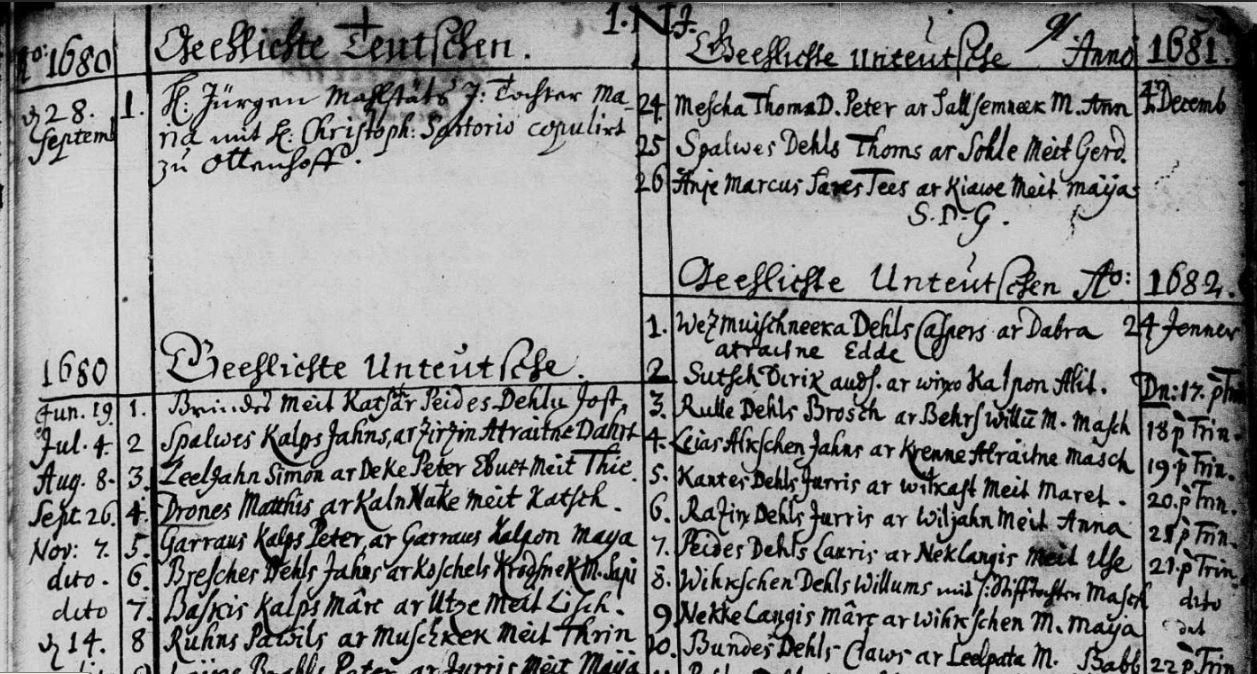 1. N. J.
Ao: 1680 Geehlichte Teutschen.
d 28. Septemb 1. H. Jürgen Mahlstäts J: Tochter Ma
ria mit H. Christoph: Sartorio copulirt
zu Ottenhoff.
1680 Geehlichte Unteutsche.
Jun. 19 1. Meit Katsch Peides Dehlu Jost
Jul. 4. 2 Spalwes Kalps Jahns, ar Zirzin Atraitne Dahrt
Aug. 8. 3. Zeel Jahn Simon ar Deke Peter Meit Thie.
Sept. 26. 4. Drones Matthis ar Kaln Nake Meit Katsch.
Nov: 7. 5. Garraus Kalps Peter, ar Garraus Kalpon Maya
dito. 6. Bresches Dehls Jahns ar Koschels M. Sapi
dito 7. Baskis Kalps Mârc ar Utze Meit Lisch.
d 14. 8 Ruhns Pawils ar Muschkek Meit Thrin
9 Peter ar Jurris Meit Maija
Geehlichte Unteutsche Anno 1681.
24. Mescha Thoma D. Peter ar Sallsemneek M. Ann 4. Decemb
25 Spalwes Dehls Thoms ar Sohle Meit Gerd.
26 Anje Marcus Tees ar Kiawe Meit Maija
S. D. G.
Geehlichte Unteutschen Ao: 1682.
1. Wezmuischneeka Dehls Caspers ar Dabra 24 Jenner
atraitne Edde
2 Sutsch Dirik auds. ar wino Kalpon Alit. Dn: 17. p Trin
3. Rulle Dehls Brosch ar Behrs Willu M. Masch 18 p Trin.
4. Leias Alkschen Jahns ar Krenne Atraitne Masch 19. p Trin.
5. Kantes Dehls Jurris ar Witkast Meit Maret. 20. p Trin.
6. Razin Dehls Jurris ar Wiljahn Meit Anna 21 p Trin.
7. Peides Dehls Lauris ar Neklangis Meit Ilse 21. p Trin
8. Wihkschen Dehls Willums mit Masch dito
9. Nekke Langis Mârc ar Wihkschen M. Maija dit
10. Bundes Dehls Claws ar Leelpata M. Babb 22 p Trin